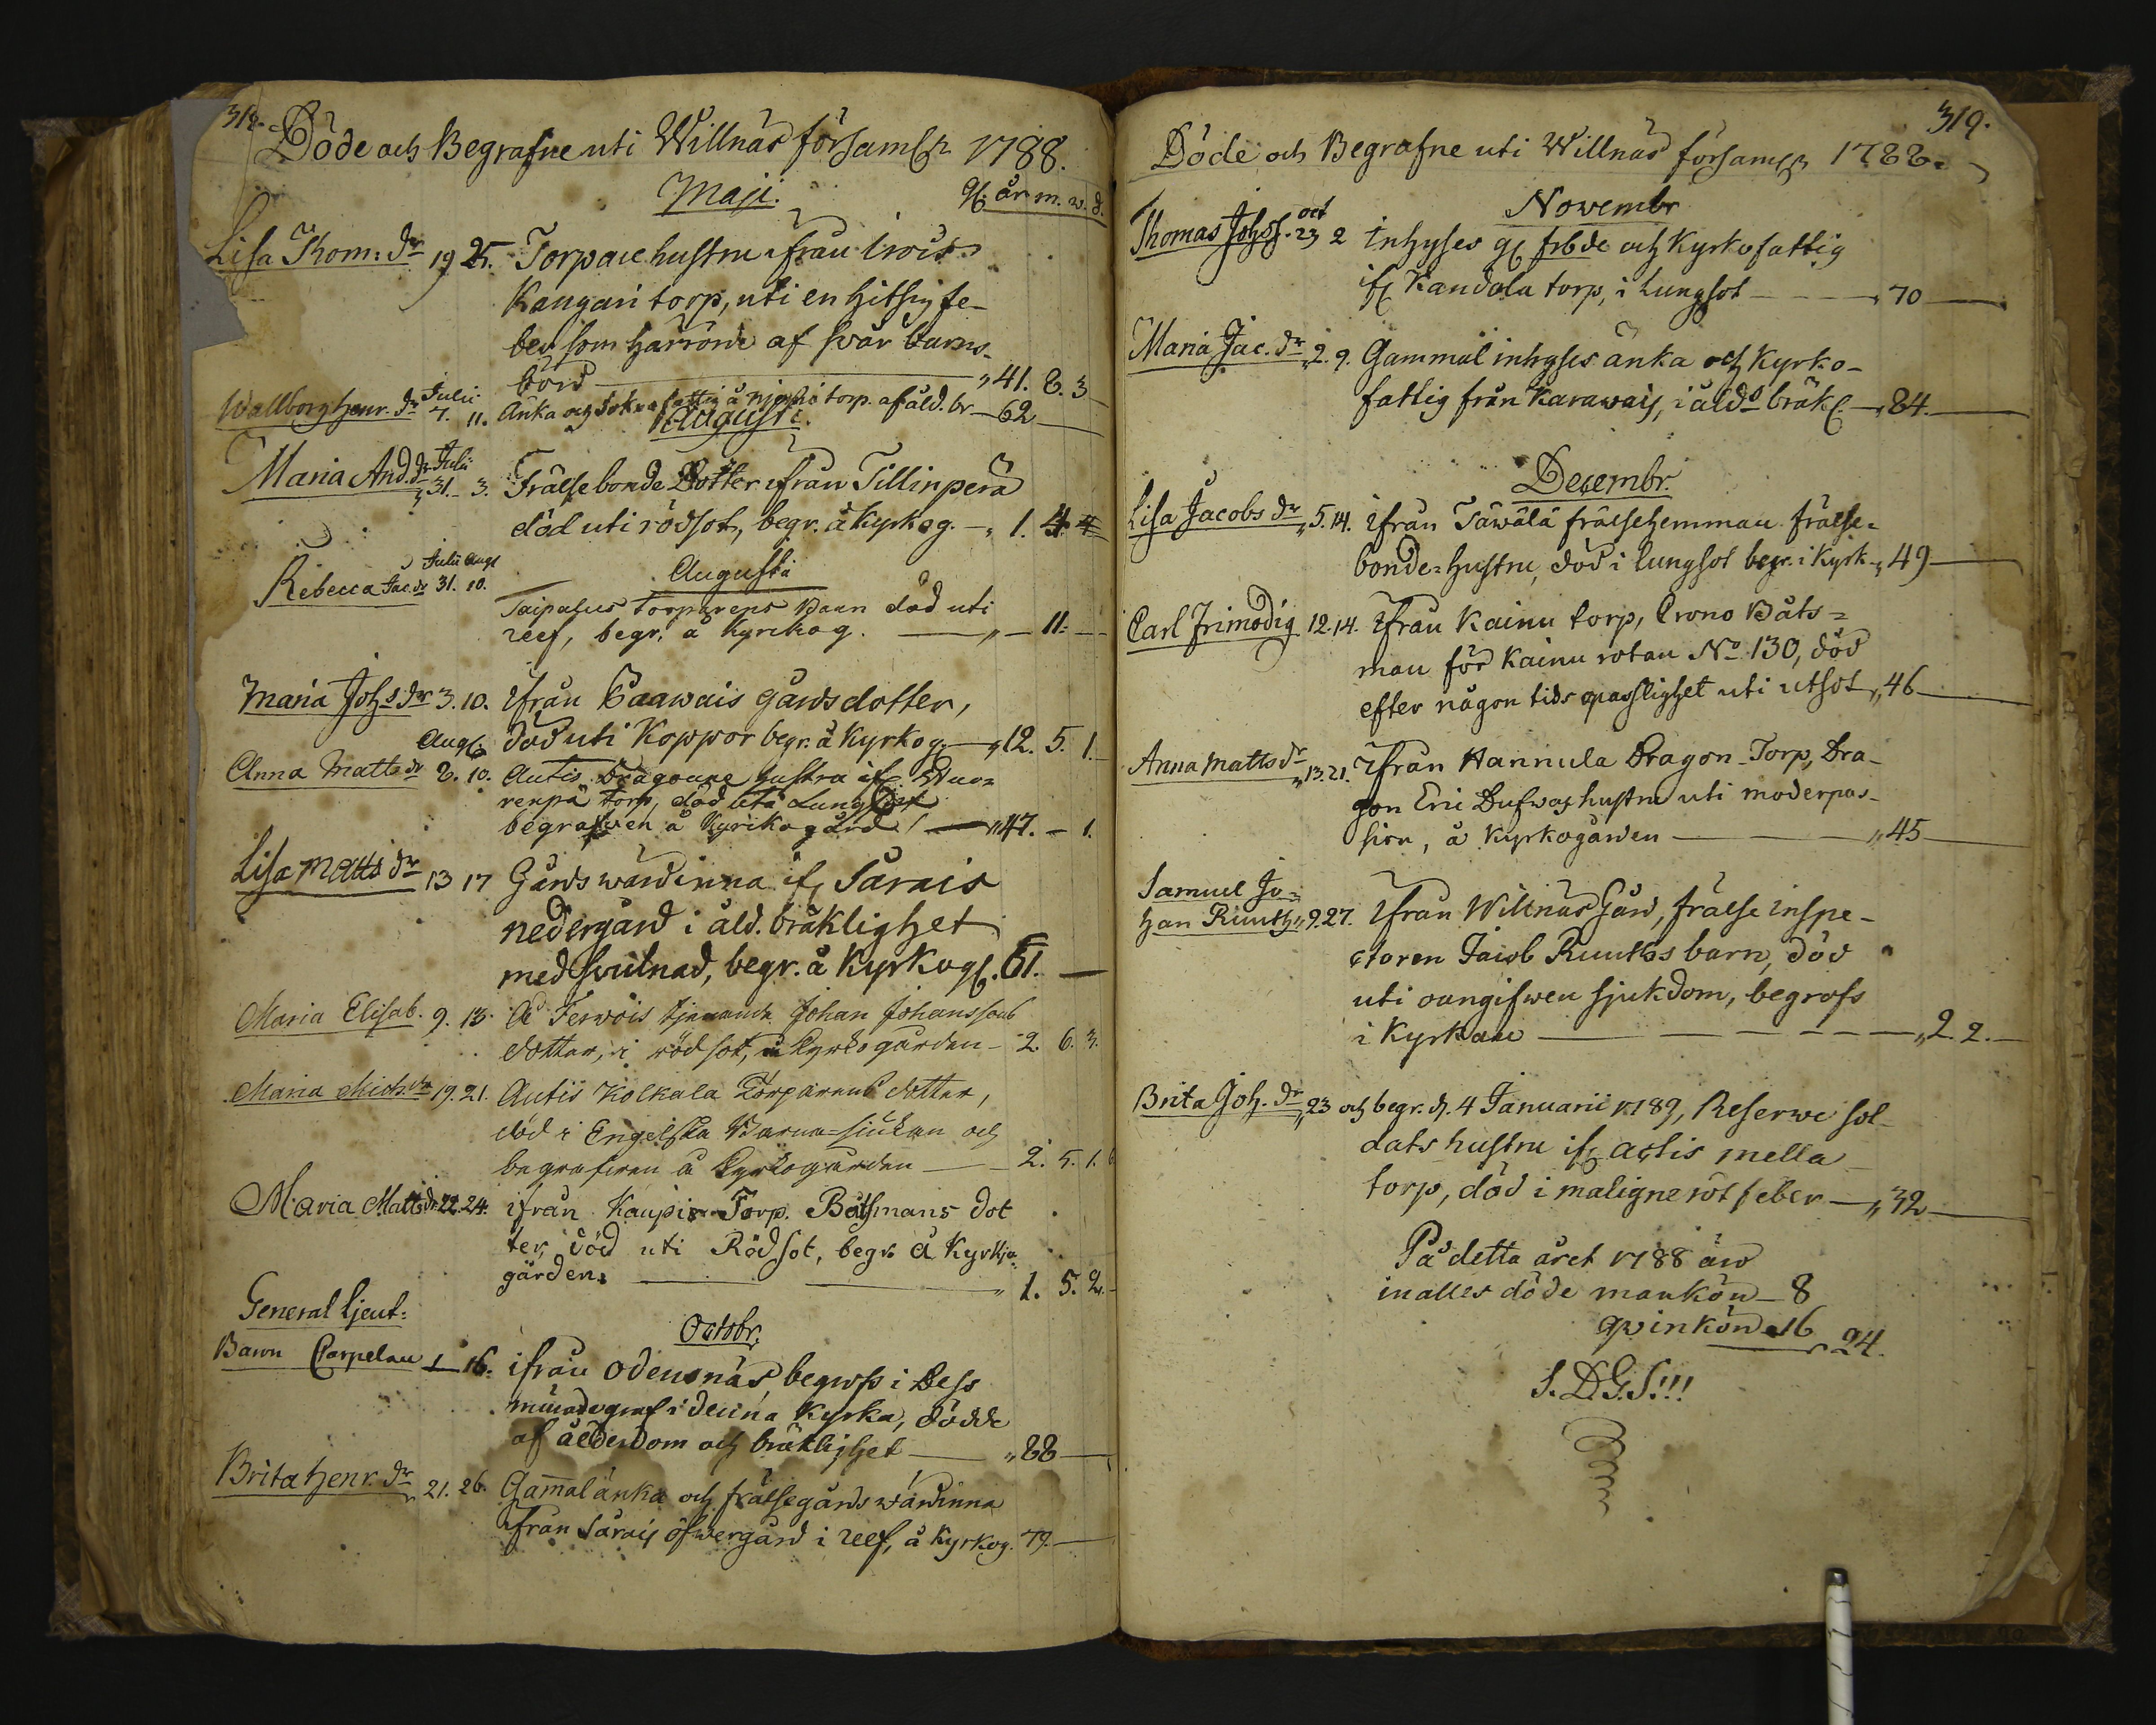 318.
Döde och Begrafne uti Willnäs församl. 1788.
Maji. år m. w. d.
Lisa Thom: dr 19 25. Torpare hustru ifrån Irois
Kangari torp, uti en hitsig fe-
ber som härrörde af svår barns-
börd 41. 8. 3
Wallborg Henr. dr Julii 7. 11. Änka och torp. af åld. br 62
Augusti.
Maria And. dr Julii 31. 3. Frälsebonde Dotter ifrån Tillinperä
död uti rödsot, begr. å Kyrkog. 1. 4.
Augusti
Rebecca Jac. dr Julii 31. Augt 10.
Taipalus torparens Barn död uti
reef, begr. å Kyrckog. 11.
Maria Johs dr 3. 10. Ifrån gårdsdotter,
död uti Koppor begr. å Kyrkog. 12. 5. 1.
Anna Matts dr Aug. 8. 10. Autis Dragoune hustru if.
renpä torp, död utå Lungsot
begrafwen å Kyrckogård 47. - 1.
Lisa Matts dr 13 17 Gårdswärdinna if. Särais
nedergård i åld. bräklighet
med svulnad, begr. å Kyrkog. 61.
Maria Elisab. 9. 13. å Ferwois tjenande Johan Johanssons
dotter, i rödsot, å Kyrkogården 2. 6. 3.
Maria Mich. dr 19. 21. Autis Kolkala Torparens dotter,
död i Engelska Barna-siukan och
begrafwen å Kyrkogården 2. 5. 1.
Maria Matts dr 22. 24. ifrån Kaupis Torp. Båtsmans dot
ter, död uti Rödsot, begr. å Kyrko-
gården. 1. 5. 2.
Octobr.
General Ljeut:
Baron Carpelan 1 16. ifrån Odensnäs begrofs i Dess
murade graf i denna Kyrka, dödde
af ålderdom och bräklighet 88
Brita Henr. dr 21. 26. Gammal änka och frälsegårdswärdinna
från Särais öfwergård i reef, å Kyrkog. 79.
319.
Döde och Begrafne uti Willnäs församl. 1788.
Novembr
Thomas Johss. oct 23 2 Inhyses och Kyrkofattig
if. Kandola torp, i lungsot 70
Maria Jac. dr 2. 9. Gammal inhyses änka och Kyrko-
fattig från Karawais, i åld. bräkl. 84.
Decembr.
Lisa Jacobs dr 5. 14. ifrån Täwälä frälsehemman frälse-
bonde-hustru, död i lungsot begr. i Kyrk. 49
Carl Frimodig 12. 14. Ifrån Kainu torp, Crono Båts-
man för Kainu rotan No 130, död
efter någon tids opasslighet uti utsot 46
Anna Matts dr 13. 21. Ifrån Hannula Dragon-Torp, Dra-
gon Eric Dufwas hustru uti moderpas-
sion, å Kyrkogården 45
Samuel Jo-
han Ruuth 9. 27. Ifrån Willnäs Gård, frälse Inspe-
ctoren Jacob Ruuths barn, död
uti oangifwen sjukdom, begrofs
i Kyrkan 2. 2.
Brita Joh. dr 23 och begr. d. 4 Januarii 1789, Reserve sol-
dats hustru if. actis mella
torp, död i maligne röt feber 32
På detta året 1788 äro
inalles döde mankön 8
qwinkön 16
24.
S. D. G. S.!!!